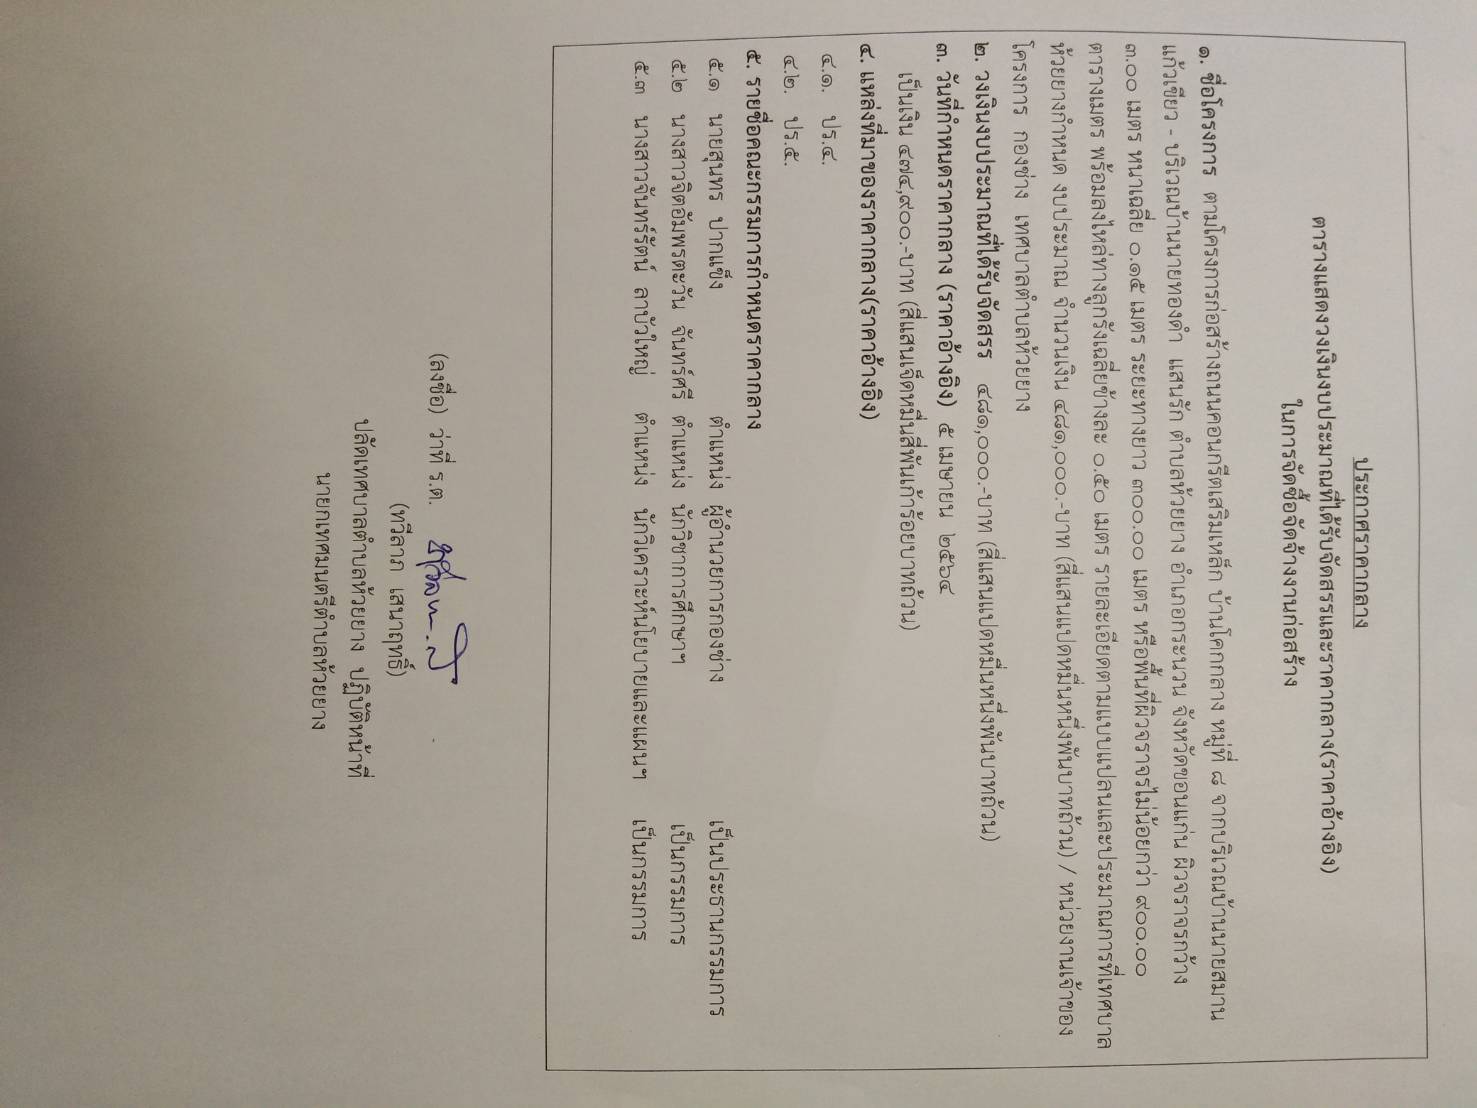 ประกาศราคากลาง
ตารางแสดงวงเงินงบประมาณที่ได้รับจัดสรรและราคากลาง(ราคาอ้างอิง)
ในการจัดซื้อจัดจ้างงานก่อสร้าง
๑. ชื่อโครงการ ตามโครงการก่อสร้างถนนคอนกรีตเสริมเหล็ก บ้านโคกกลาง หมู่ที่ ๘ จากบริเวณบ้านนายสมาน
แก้วเขียว - บริเวณบ้านนายทองดำ แสนรัก ตำบลห้วยยาง อำเภอกระนวน จังหวัดขอนแก่น ผิวจราจรกว้าง
๓.๐๐ เมตร หนาเฉลี่ย ๐.๑๕ เมตร ระยะทางยาว ๓๐๐.๐๐ เมตร หรือพื้นที่ผิวจราจรไม่น้อยกว่า ๙๐๐.๐๐
ตารางเมตร พร้อมลงไหล่ทางลูกรังเฉลี่ยข้างละ ๐.๕๐ เมตร รายละเอียดตามแบบแปลนและประมาณการที่เทศบาล
ห้วยยางกำหนด งบประมาณ จำนวนเงิน ๔๘๑,๐๐๐.-บาท (สี่แสนแปดหมื่นหนึ่งพันบาทถ้วน) / หน่วยงานเจ้าของ
โครงการ กองช่าง เทศบาลตำบลห้วยยาง
๒. วงเงินงบประมาณที่ได้รับจัดสรร ๔๘๑,๐๐๐.-บาท (สี่แสนแปดหมื่นหนึ่งพันบาทถ้วน)
๓. วันที่กำหนดราคากลาง (ราคาอ้างอิง) ๕ เมษายน ๒๕๖๔
เป็นเงิน ๔๗๔,๙๐๐.-บาท (สี่แสนเจ็ดหมื่นสี่พันเก้าร้อยบาทถ้วน)
๔. แหล่งที่มาของราคากลาง(ราคาอ้างอิง)
๔.๑. ปร.๔.
๔.๒. ปร.๕.
๕. รายชื่อคณะกรรมการกำหนดราคากลาง
๕.๑ นายสุนทร ปากแข็ง ตำแหน่ง ผู้อำนวยการกองช่าง เป็นประธานกรรมการ
๕.๒ นางสาวจิตอัมพรตะวัน จันทร์ศรี ตำแหน่ง นักวิชาการศึกษาฯ เป็นกรรมการ
๕.๓ นางสาวจันทร์รัตน์ ลาบัวใหญ่ ตำแหน่ง นักวิเคราะห์นโยบายและแผนฯ เป็นกรรมการ
(ลงชื่อ) ว่าที่ ร.ต.
(ทวีลาภ เสนาฤทธิ์)
ปลัดเทศบาลตำบลห้วยยาง ปฏิบัติหน้าที่
นายกเทศมนตรีตำบลห้วยยาง